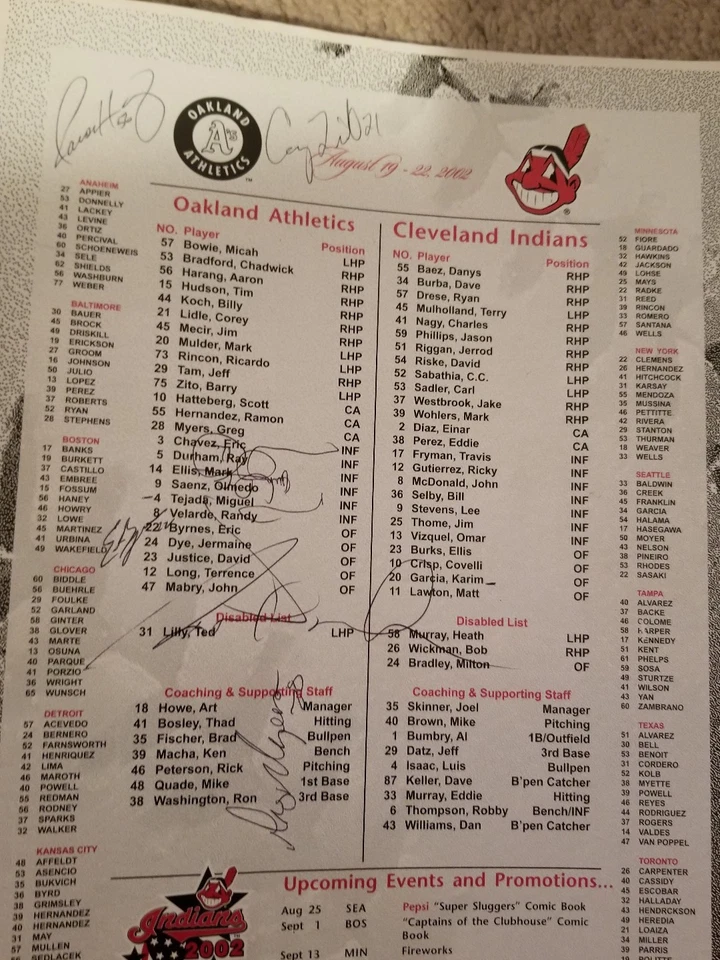 OAKLAND
A's
ATHLETICS
August 19 - 22, 2002
ANAHEIM
27 APPIER
53 DONNELLY
41 LACKEY
43 LEVINE
36 ORTIZ
40 PERCIVAL
60 SCHOENEWEIS
34 SELE
62 SHIELDS
56 WASHBURN
77 WEBER
BALTIMORE
30 BAUER
45 BROCK
49 DRISKILL
19 ERICKSON
27 GROOM
16 JOHNSON
50 JULIO
13 LOPEZ
39 PEREZ
37 ROBERTS
52 RYAN
28 STEPHENS
BOSTON
17 BANKS
19 BURKETT
37 CASTILLO
43 EMBREE
15 FOSSUM
56 HANEY
46 HOWRY
32 LOWE
45 MARTINEZ
41 URBINA
49 WAKEFIELD
CHICAGO
60 BIDDLE
56 BUEHRLE
29 FOULKE
52 GARLAND
58 GINTER
38 GLOVER
43 MARTE
13 OSUNA
40 PARQUE
41 PORZIO
36 WRIGHT
65 WUNSCH
DETROIT
57 ACEVEDO
24 BERNERO
52 FARNSWORTH
41 HENRIQUEZ
42 LIMA
46 MAROTH
48 POWELL
55 REDMAN
56 RODNEY
37 SPARKS
32 WALKER
KANSAS CITY
48 AFFELDT
53 ASENCIO
35 BUKVICH
36 BYRD
38 GRIMSLEY
39 HERNANDEZ
40 HERNANDEZ
31 MAY
57 MULLEN
SEDLACEK
Oakland Athletics
NO. Player Position
57 Bowie, Micah LHP
53 Bradford, Chadwick RHP
56 Harang, Aaron RHP
15 Hudson, Tim RHP
44 Koch, Billy RHP
21 Lidle, Corey RHP
45 Mecir, Jim RHP
20 Mulder, Mark LHP
73 Rincon, Ricardo LHP
29 Tam, Jeff RHP
75 Zito, Barry LHP
10 Hatteberg, Scott CA
55 Hernandez, Ramon CA
28 Myers, Greg CA
3 Chavez, Eric INF
5 Durham, Ray INF
14 Ellis, Mark INF
9 Saenz, Olmedo INF
4 Tejada, Miguel INF
8 Velarde, Randy INF
22 Byrnes, Eric OF
24 Dye, Jermaine OF
23 Justice, David OF
12 Long, Terrence OF
47 Mabry, John OF
Disabled List
31 Lilly, Ted LHP
Coaching & Supporting Staff
18 Howe, Art Manager
41 Bosley, Thad Hitting
35 Fischer, Brad Bullpen
39 Macha, Ken Bench
46 Peterson, Rick Pitching
48 Quade, Mike 1st Base
38 Washington, Ron 3rd Base
Cleveland Indians
NO. Player Position
55 Baez, Danys RHP
34 Burba, Dave RHP
57 Drese, Ryan RHP
45 Mulholland, Terry LHP
41 Nagy, Charles RHP
59 Phillips, Jason RHP
51 Riggan, Jerrod RHP
54 Riske, David RHP
52 Sabathia, C.C. LHP
53 Sadler, Carl LHP
37 Westbrook, Jake RHP
39 Wohlers, Mark RHP
2 Diaz, Einar CA
38 Perez, Eddie CA
17 Fryman, Travis INF
12 Gutierrez, Ricky INF
8 McDonald, John INF
36 Selby, Bill INF
9 Stevens, Lee INF
25 Thome, Jim INF
13 Vizquel, Omar INF
23 Burks, Ellis OF
10 Crisp, Covelli OF
20 Garcia, Karim OF
11 Lawton, Matt OF
Disabled List
58 Murray, Heath LHP
26 Wickman, Bob RHP
24 Bradley, Milton OF
Coaching & Supporting Staff
35 Skinner, Joel Manager
40 Brown, Mike Pitching
1 Bumbry, Al 1B/Outfield
29 Datz, Jeff 3rd Base
4 Isaac, Luis Bullpen
87 Keller, Dave B'pen Catcher
33 Murray, Eddie Hitting
6 Thompson, Robby Bench/INF
43 Williams, Dan B'pen Catcher
MINNESOTA
52 FIORE
18 GUARDADO
32 HAWKINS
42 JACKSON
49 LOHSE
25 MAYS
22 RADKE
31 REED
39 RINCON
33 ROMERO
57 SANTANA
46 WELLS
NEW YORK
22 CLEMENS
26 HERNANDEZ
41 HITCHCOCK
31 KARSAY
55 MENDOZA
35 MUSSINA
46 PETTITTE
42 RIVERA
29 STANTON
53 THURMAN
18 WEAVER
33 WELLS
SEATTLE
33 BALDWIN
36 CREEK
45 FRANKLIN
34 GARCIA
54 HALAMA
17 HASEGAWA
50 MOYER
43 NELSON
38 PINEIRO
53 RHODES
22 SASAKI
TAMPA
40 ALVAREZ
37 BACKE
46 COLOME
58 HARPER
17 KENNEDY
51 KENT
61 PHELPS
59 SOSA
49 STURTZE
41 WILSON
43 YAN
60 ZAMBRANO
TEXAS
51 ALVAREZ
30 BELL
53 BENOIT
31 CORDERO
52 KOLB
38 MYETTE
39 POWELL
46 REYES
44 RODRIGUEZ
37 ROGERS
14 VALDES
47 VAN POPPEL
TORONTO
26 CARPENTER
40 CASSIDY
45 ESCOBAR
32 HALLADAY
43 HENDRCKSON
49 HEREDIA
21 LOAIZA
34 MILLER
39 PARRIS
Indians
2002
Upcoming Events and Promotions...
Aug 25 SEA Pepsi "Super Sluggers" Comic Book
Sept 1 BOS "Captains of the Clubhouse" Comic
Book
Sept 13 MIN Fireworks